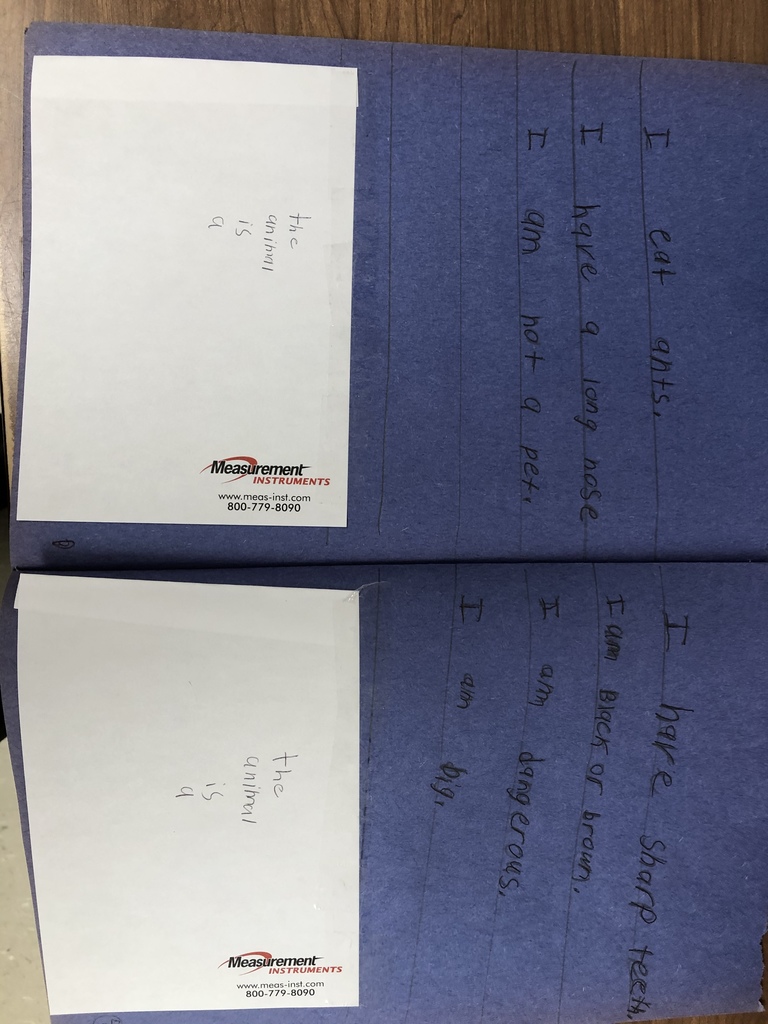 I eat ants.
I have a long nose
I am not a pet.
the
animal
is
a
Measurement
INSTRUMENTS
www.meas-inst.com
800-779-8090
I have sharp teeth.
I am Black or brown.
I am dangerous.
I am big.
the
animal
is
a
Measurement
INSTRUMENTS
www.meas-inst.com
800-779-8090